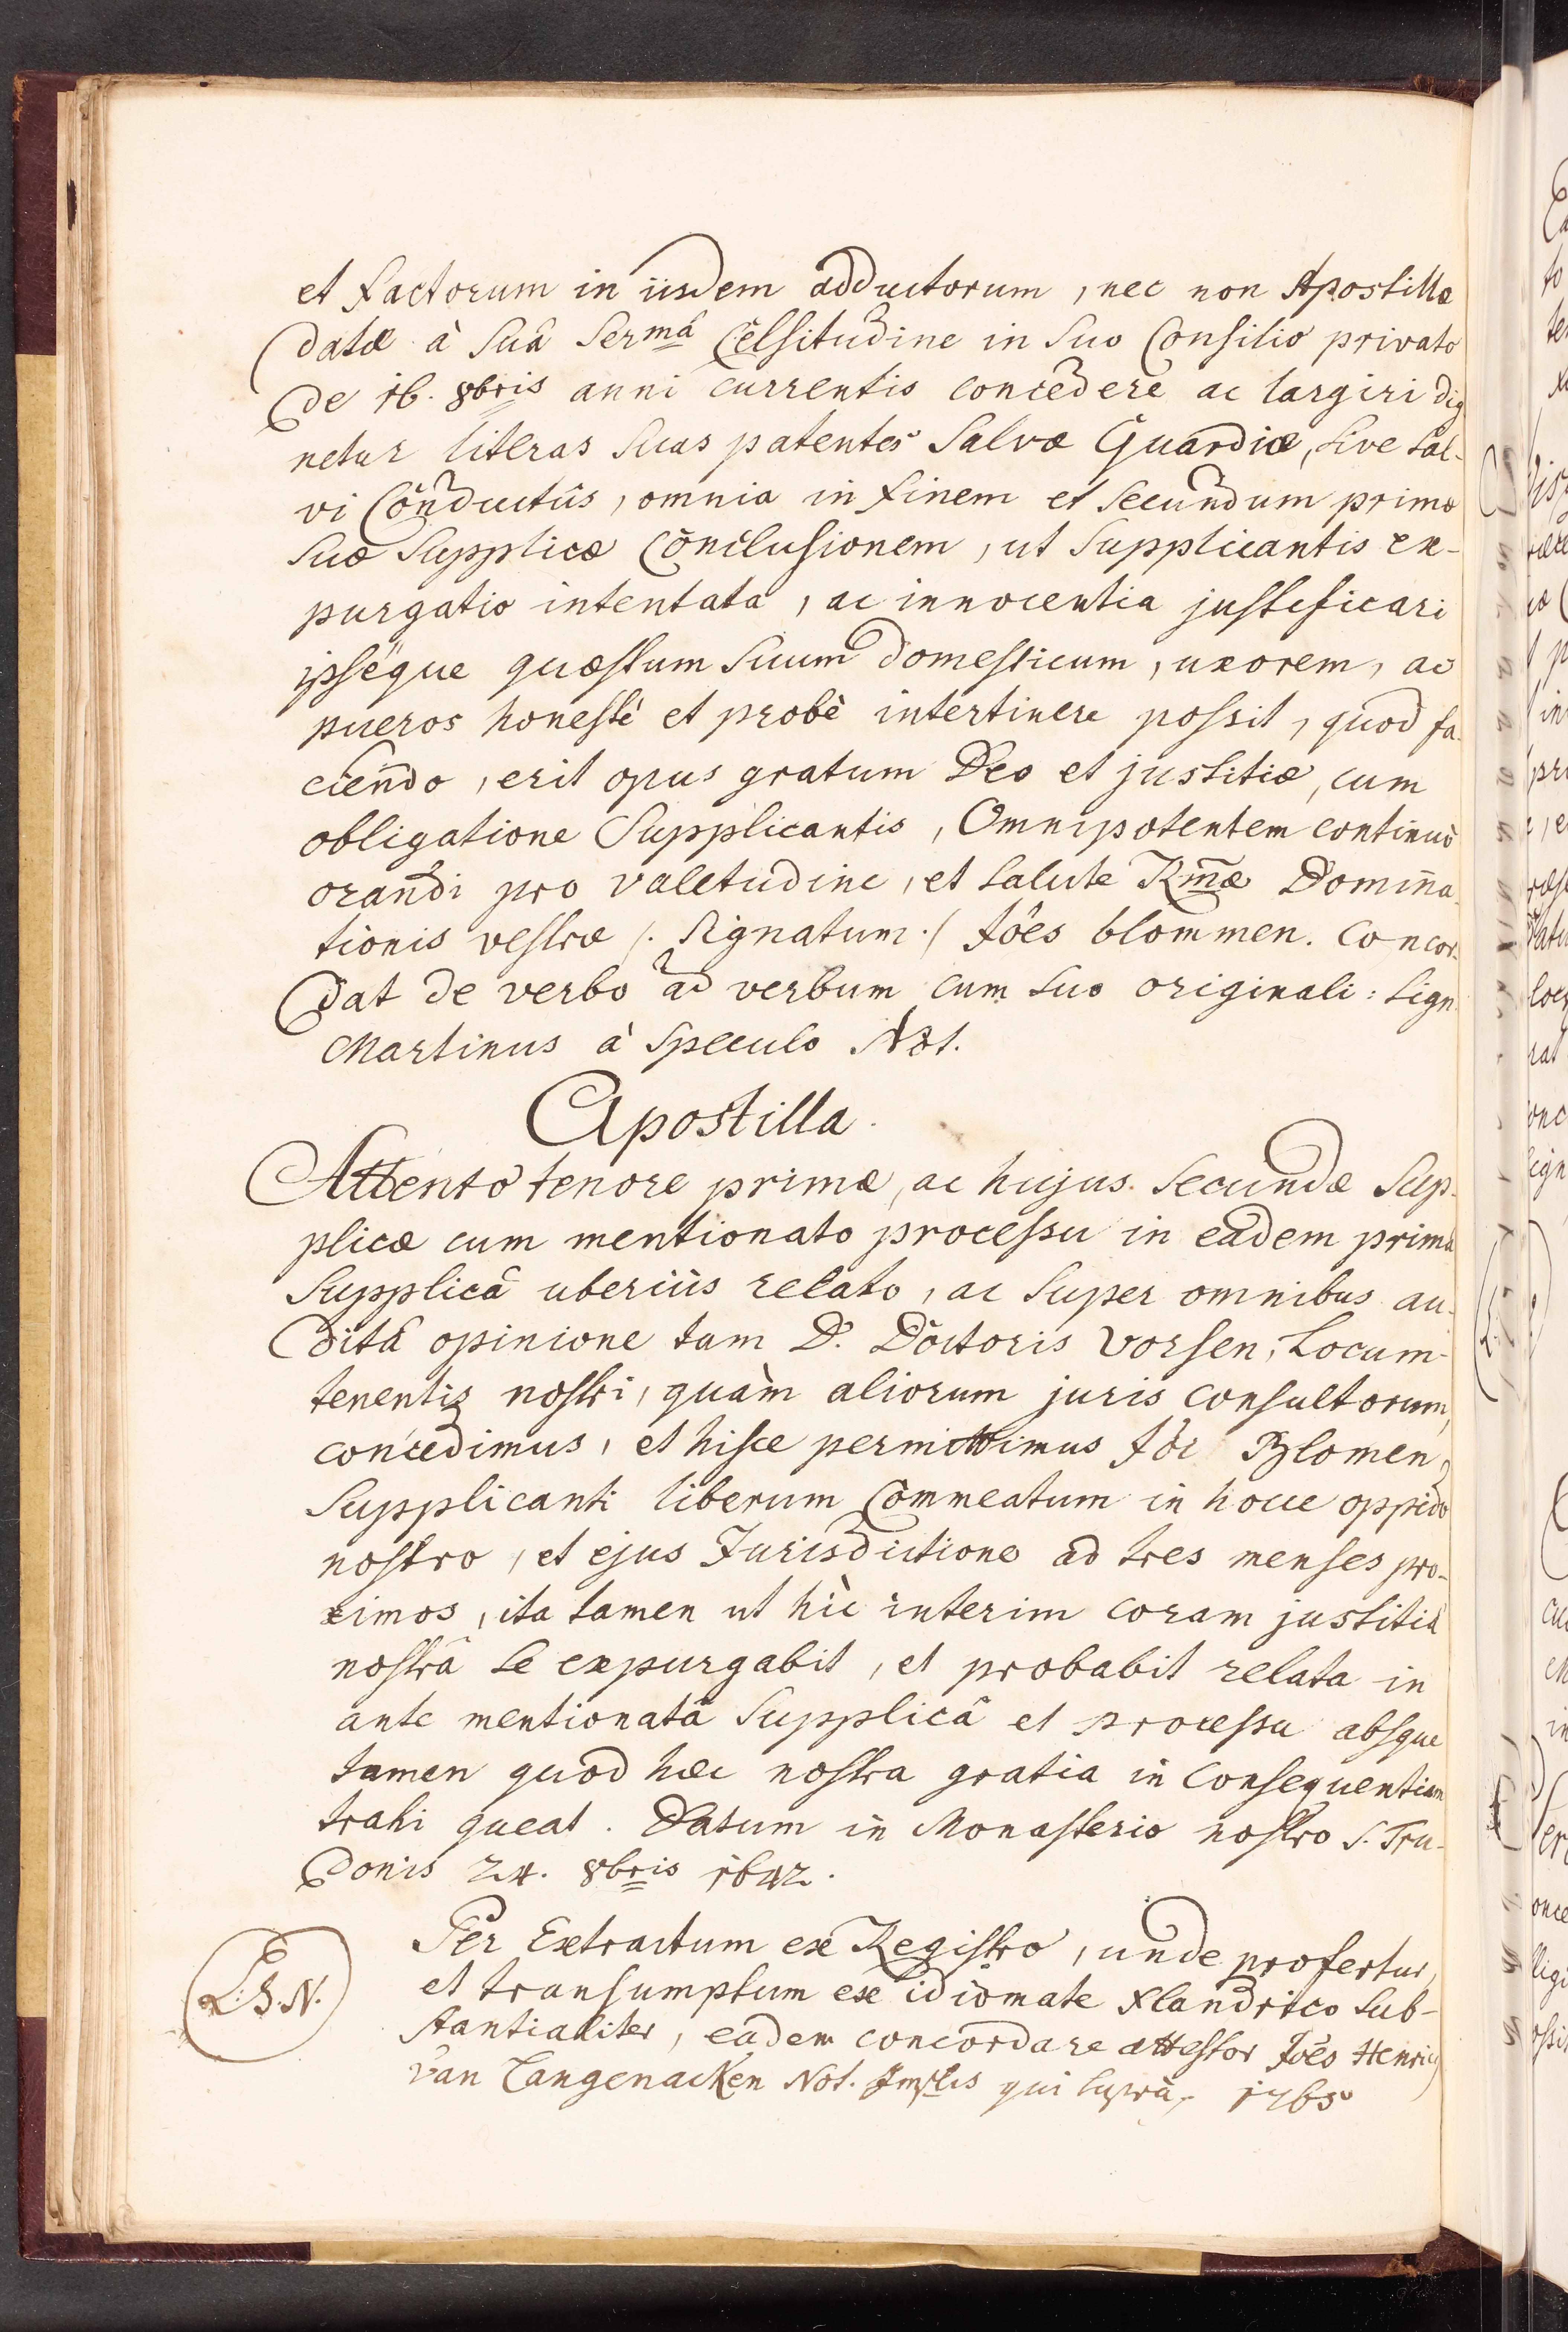 et factorum in iisdem adductorum, nec non Apostillæ
datæ à Suâ Sermâ Celsitudine in Suo Consilio privato
de 16. 8bris anni currentis concedere ac largiri dig
netur literas Suas patentes Salvæ Guardiæ, sive Sal-
vi Conductûs, omnia in finem et secundum primæ
Suæ Supplicæ Conclusionem, ut Supplicantis ex-
purgatio intentata, ac innocentia justificari
ipséque quæstum Suum domesticum, uxorem, ac
pueros honestè et probè intertinere possit, quod fa-
ciendo, erit opus gratum Deo et justitiæ, cum
obligatione Supplicantis, Omnipotentem continuò
orandi pro valetudine, et Salute Rmæ Domina-
tionis vestræ /. Signatum ./ Jöes blommen. Concor-
dat de verbo ad verbum cum Suo originali: Sign.
Martinus à Speculo Not.
Apostilla.
Attento tenore primæ, ac hujus Secundæ Sup-
plicæ cum mentionato processu in eâdem primâ
Supplicâ uberiùs relato, ac Super omnibus au-
ditâ opinione tam D. Doctoris Vorsen, Locum-
tenentis nostri, quàm aliorum juris consultorum,
concedimus, et hisce permittimus Jöi Blomen,
Supplicanti liberum Commeatum in hocce oppido
nostro, et ejus Jurisdictione ad tres menses pro-
ximos, ita tamen ut hìc interim coram justitiâ
nostrâ Se expurgabit, et probabit relata in
ante mentionatâ Supplicâ et processu absque
tamen quod hæc nostra gratia in Consequentiam
trahi queat. Datum in Monasterio nostro S. Tru-
donis 24. 8bris 1642.
Per Extractum ex Registro, unde profertur,
et transumptum ex idiomate flandrico Sub-
stantialiter, eadem concordare attestor Joës Henricus
van Langenacken Not. Implis qui Suprà, 1765
L.S.N.